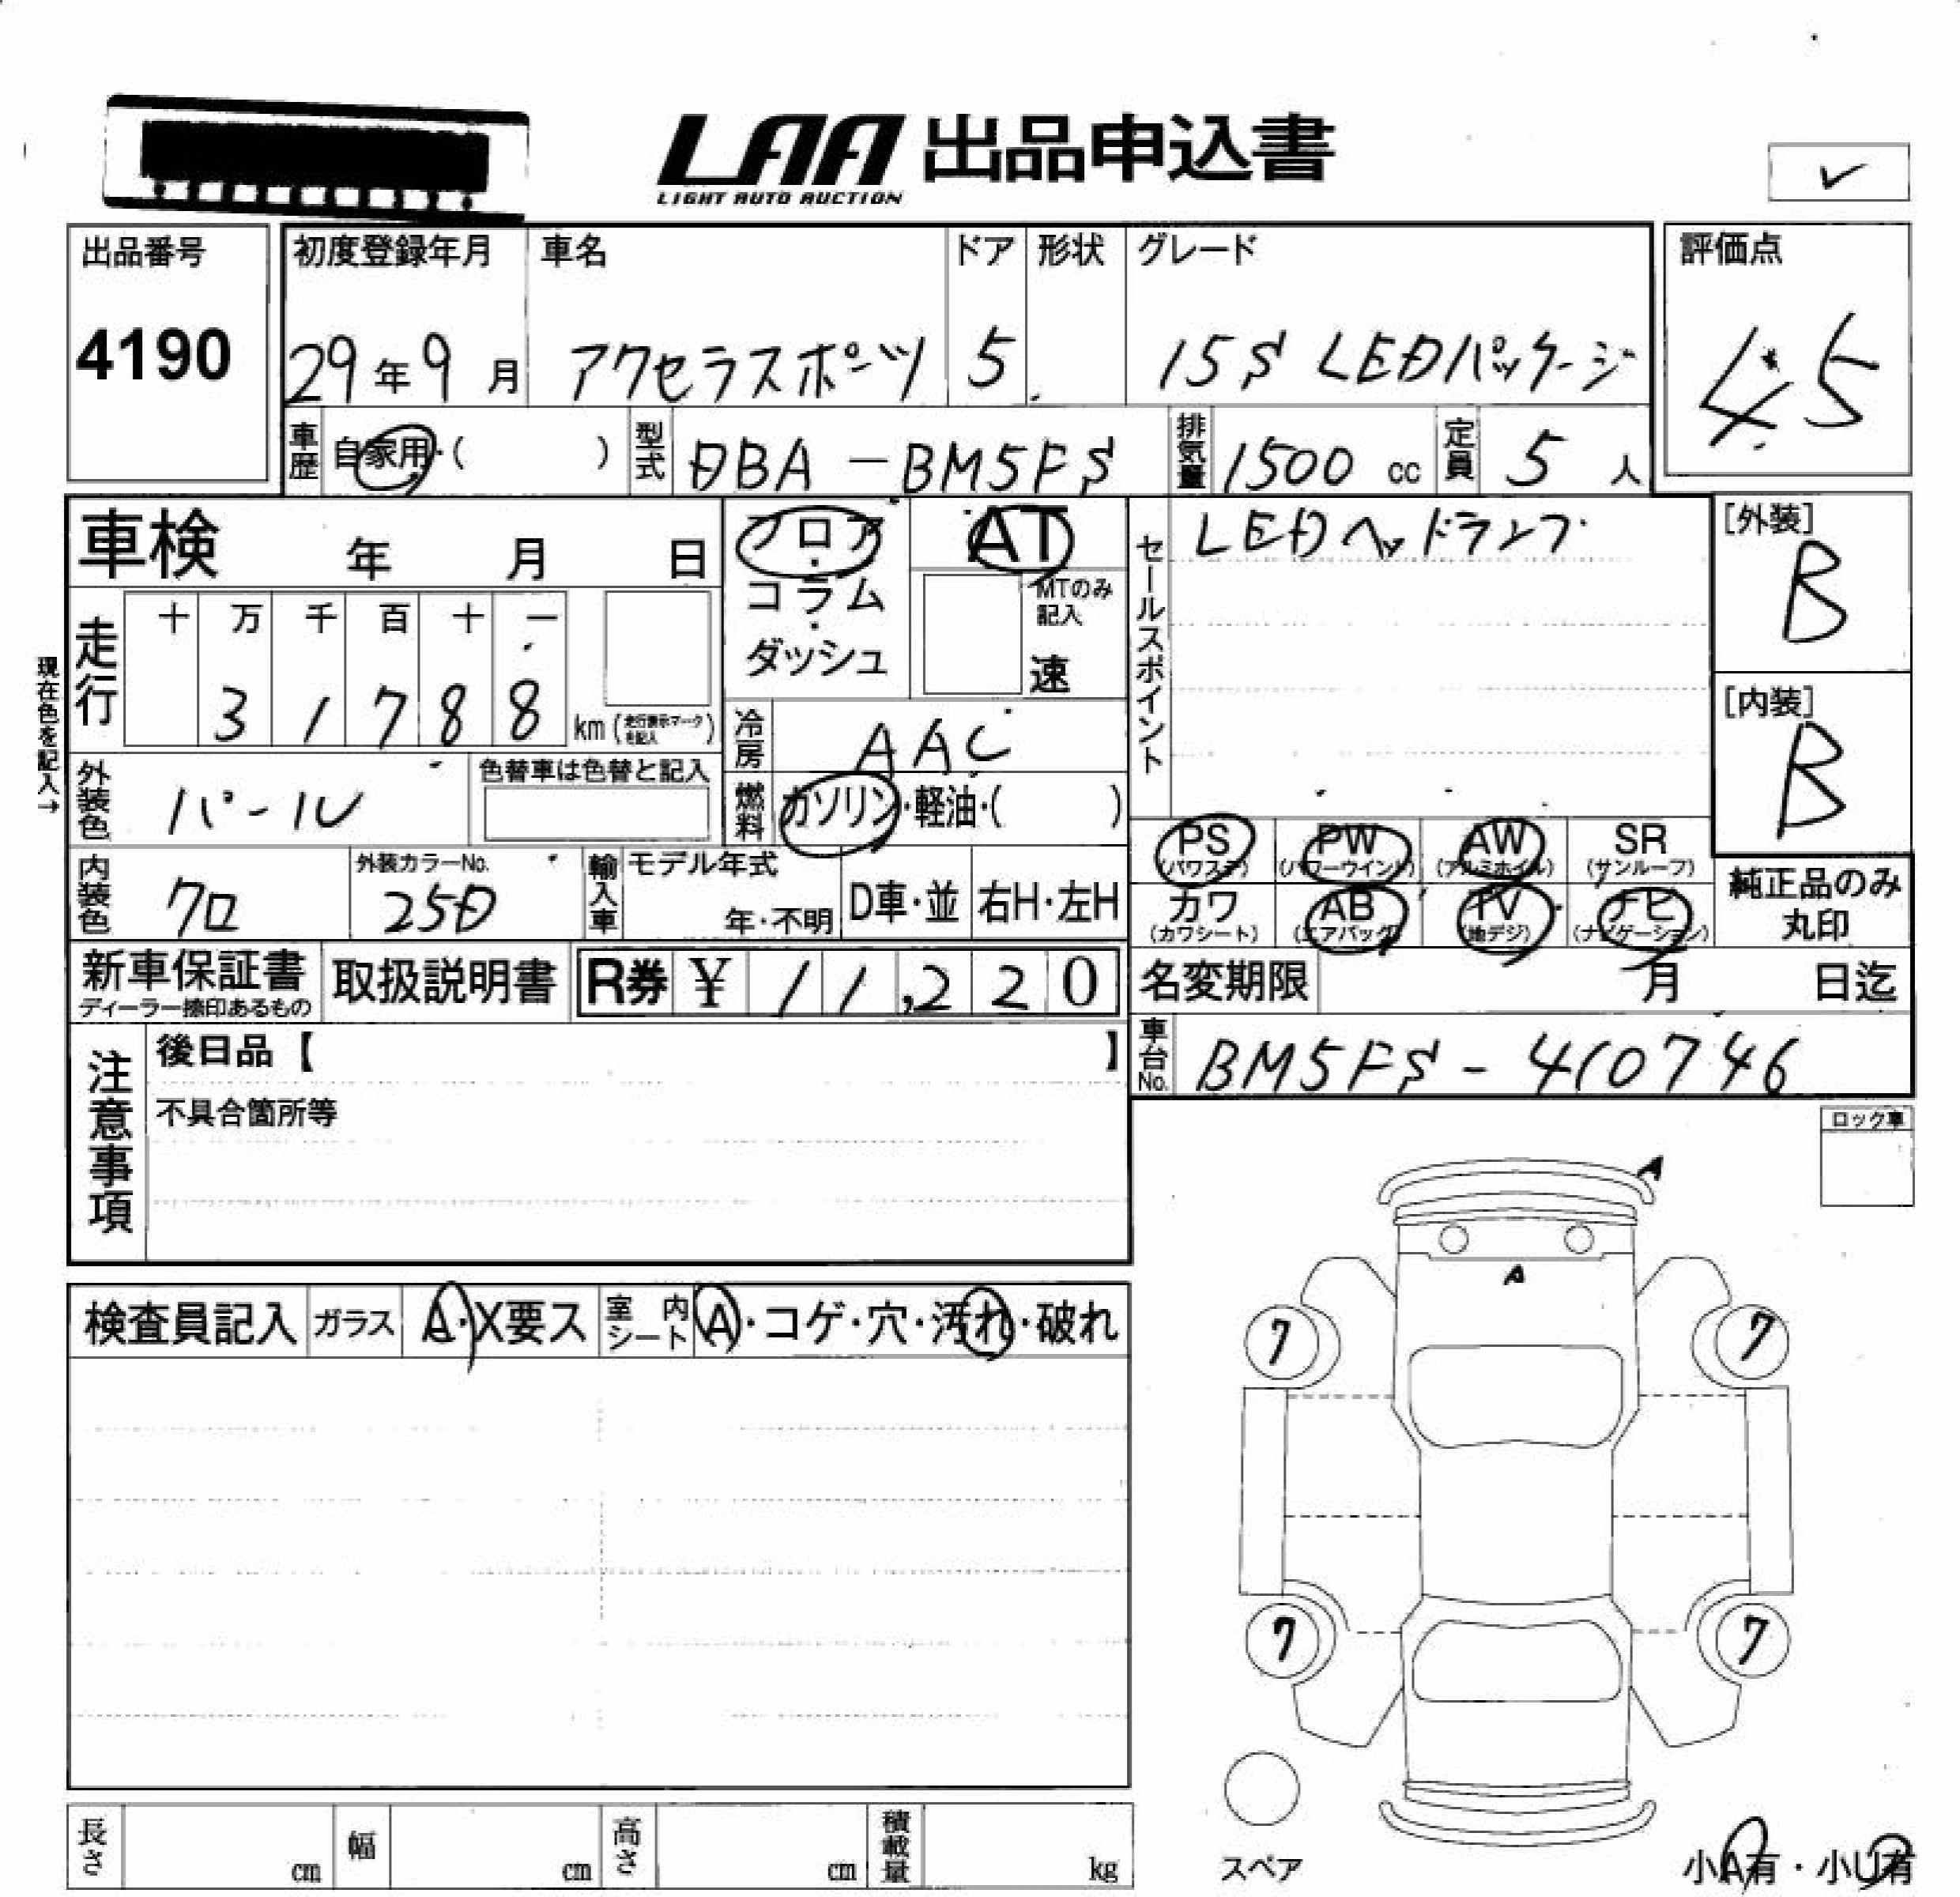 LAA 出品申込書
LIGHT AUTO AUCTION
✓
出品番号 初度登録年月 車名 ドア 形状 グレード 評価点
4190 29年9月 アクセラスポーツ 5 15S LEDパッケージ 4.5
車歴 自家用・( ) 型式 DBA-BM5FS 排気量 1500 cc 定員 5 人
車検 年 月 日 フロア・コラム・ダッシュ AT
MTのみ記入 速
セールスポイント LEDヘッドランプ
[外装] B
[内装] B
現在色を記入→
走行 十 万 千 百 十 一
3 1 7 8 8 km (走行表示マークを記入)
冷房 AAC
外装色 パール 色替車は色替と記入
燃料 ガソリン・軽油・( )
PS (パワステ) PW (パワーウインド) AW (アルミホイル) SR (サンルーフ)
カワ (カワシート) AB (エアバッグ) TV (地デジ) ナビ (ナビゲーション)
純正品のみ丸印
内装色 クロ 外装カラーNo. 25D 輸入車 モデル年式 年・不明 D車・並 右H・左H
新車保証書 ディーラー捺印あるもの 取扱説明書 R券 ¥ 11,220
名変期限 月 日迄
車台No. BM5FS-410746
注意事項 後日品【 】
不具合箇所等
ロック車
A
A
検査員記入 ガラス A・X要ス 室内シート A・コゲ・穴・汚れ・破れ
7 7
7 7
スペア
小A有・小U有
長さ cm 幅 cm 高さ cm 積載量 kg